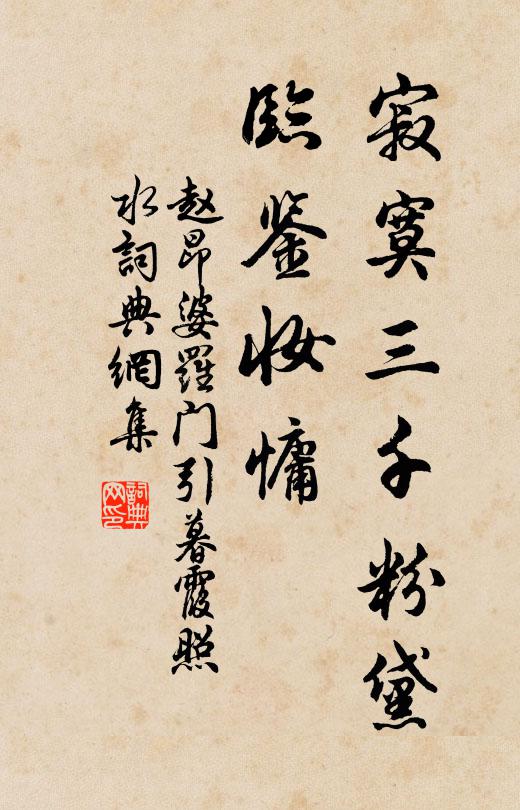 寂寞三千粉黛
臨鉴妆慵
赵昂婆羅门引暮霞照
水詞典網集
詞典
网印